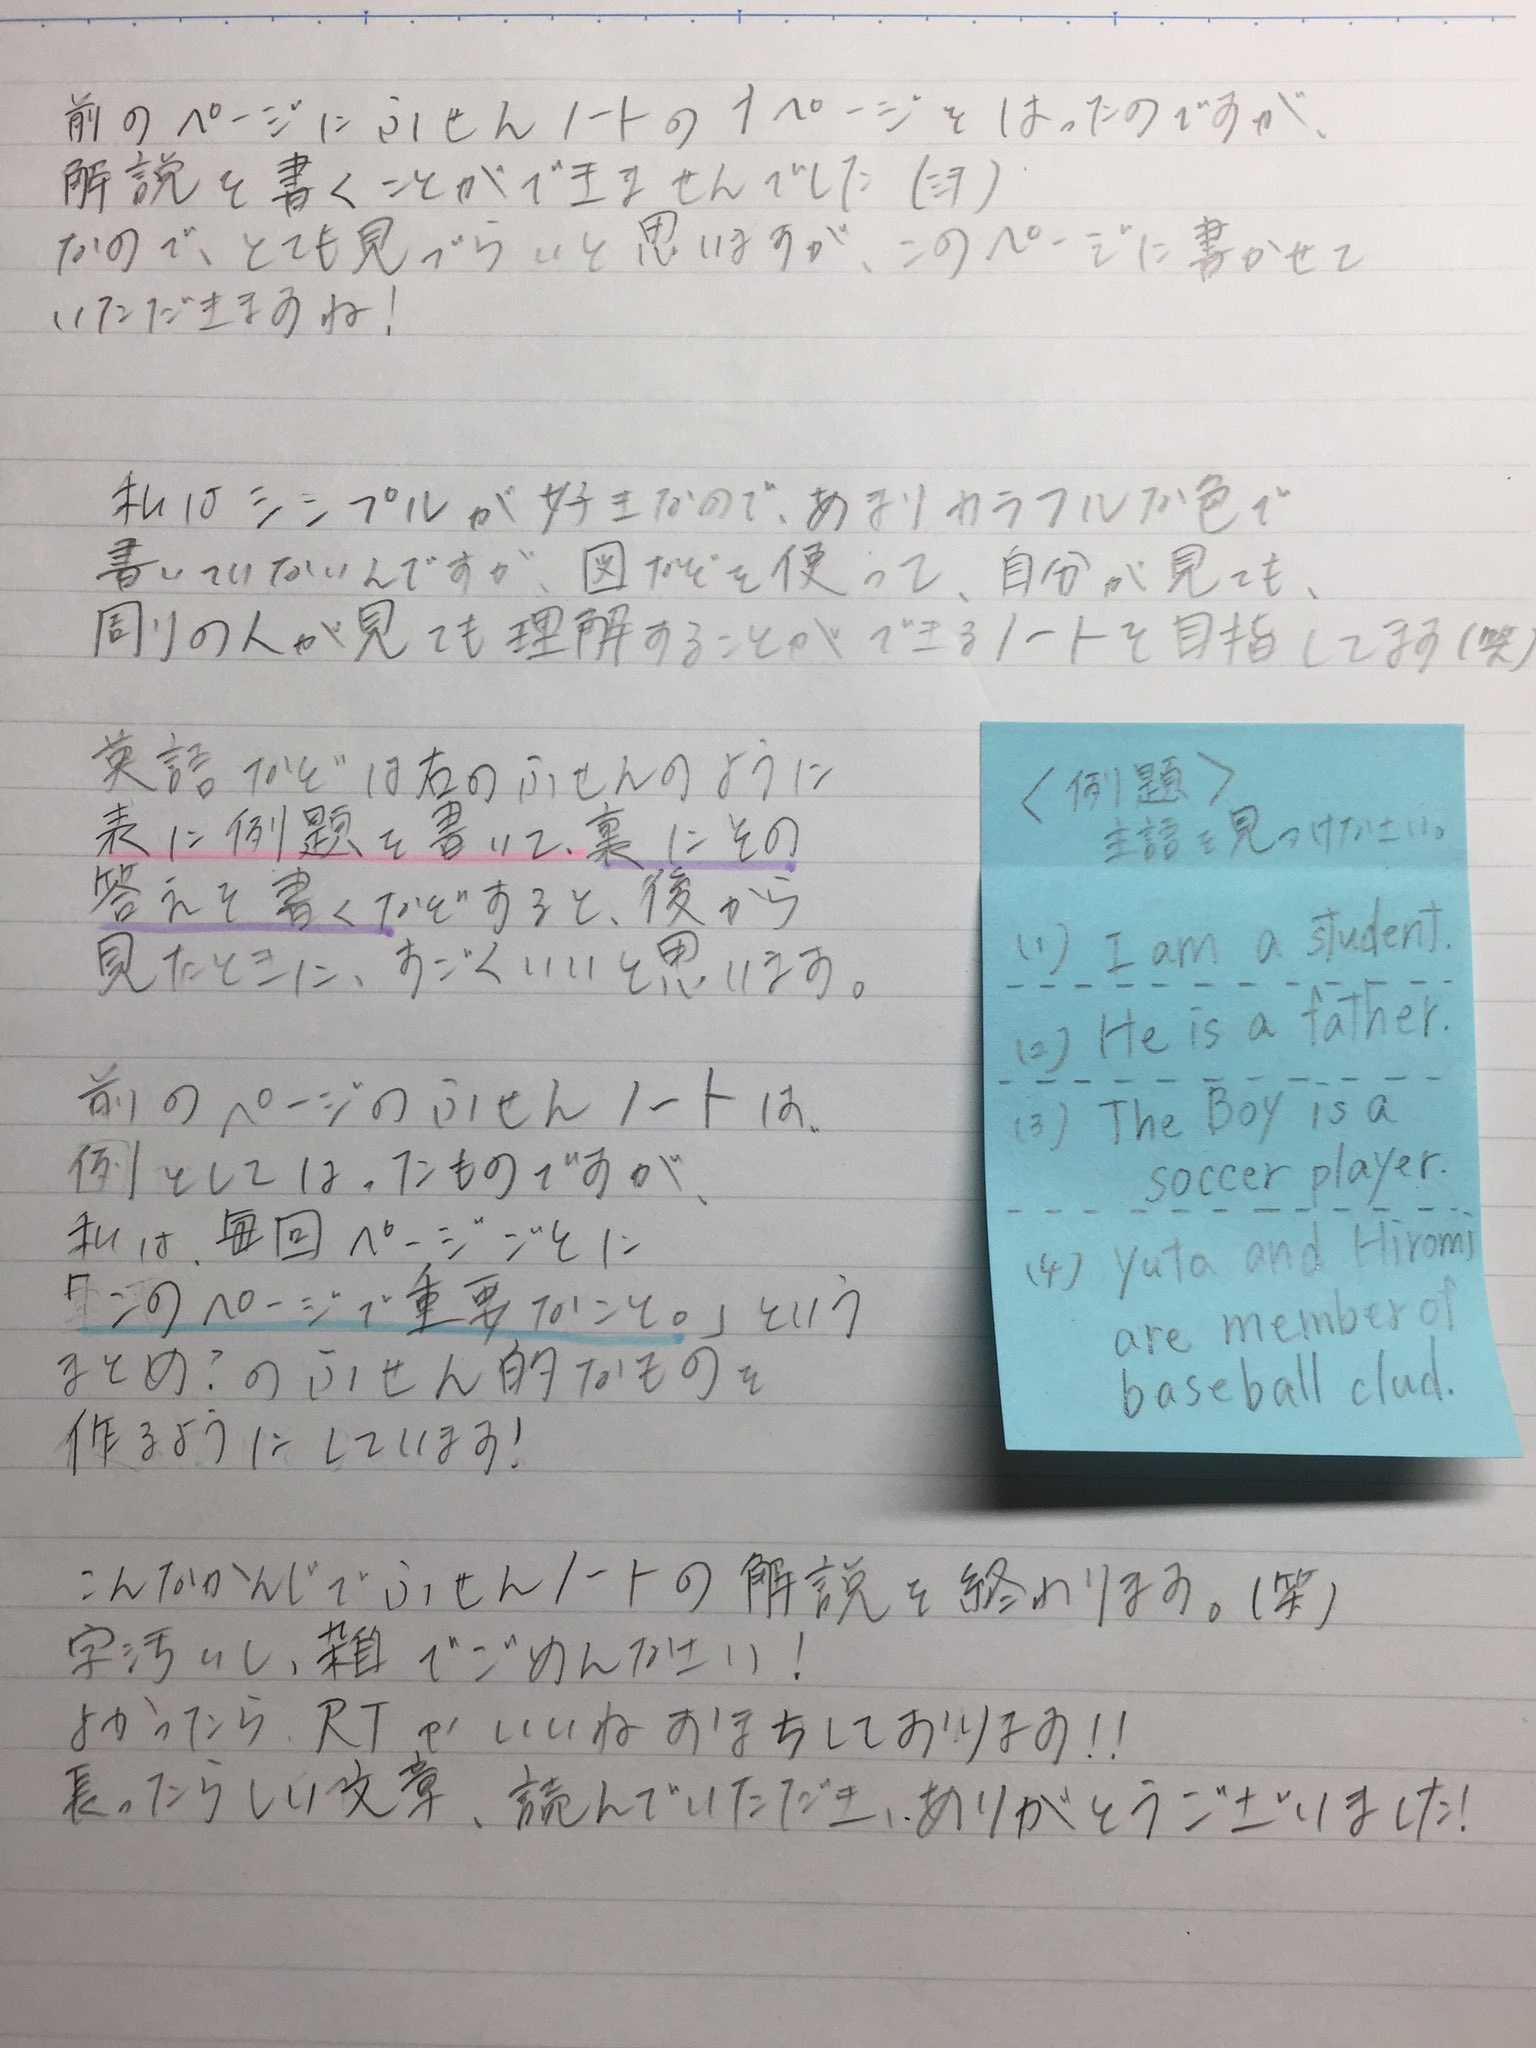 前のページにふせんノートの1ページをはったのですが、
解説を書くことができませんでした(汗)
なので、とても見づらいと思いますが、このページに書かせて
いただきますね!
私はシンプルが好きなので、あまりカラフルな色で
書いていないんですが、図などを使って、自分が見ても、
周りの人が見ても理解することができるノートを目指してます(笑)
英語などは右のふせんのように
表に例題を書いて、裏にその
答えを書くなどすると、後から
見たときに、すごくいいと思います。
<例題>
主語を見つけなさい。
(1) I am a student.
(2) He is a father.
(3) The Boy is a
soccer player.
(4) Yuta and Hiromi
are member of
baseball clud.
前のページのふせんノートは、
例としてはったものですが、
私は、毎回ページごとに
「このページで重要なこと。」という
まとめ?のふせん的なものを
作るようにしています!
こんなかんじでふせんノートの解説を終わります。(笑)
字汚いし、雑でごめんなさい!
よかったら、RTやいいねおまちしております!!
長ったらしい文章、読んでいただき、ありがとうございました!